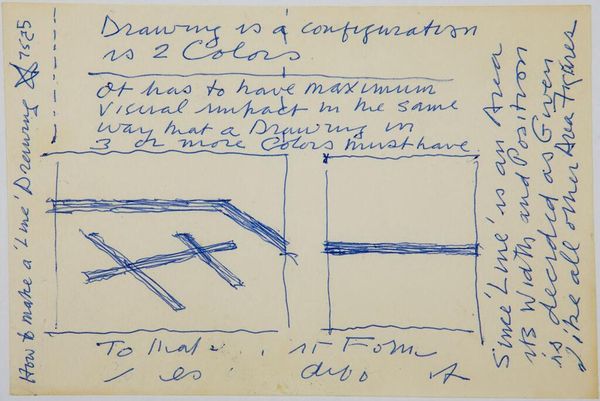 Drawing is a configuration
is 2 Colors
It has to have maximum
Visual impact in the same
way that a Drawing in
3 or more Colors must have
How to make a 'Line' Drawing
7525
Since 'Line' is an Area
its Width and Position
is decided as Given
Like all other Area Figures
To that
it Form